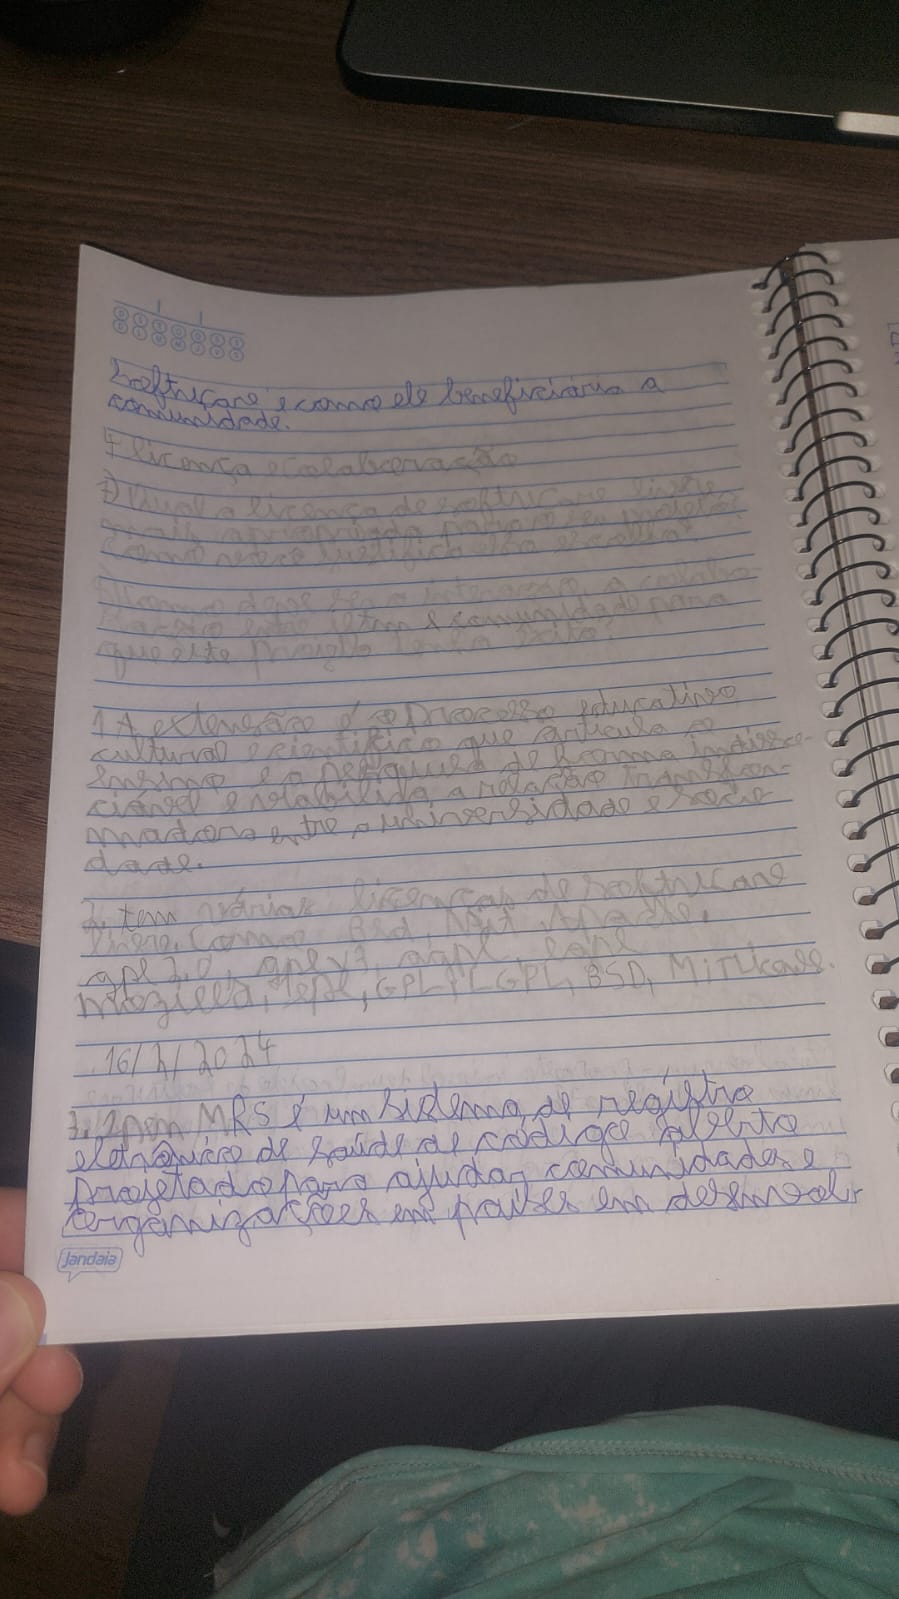 Software e como ele beneficiária a
comunidade.
4 licença e colaboração
7) Qual a licença de software livre
mais apropriada para o seu projeto?
Como você justifica essa escolha?
deve ser a interação, a colabo-
ração entre e comunidade para
que este projeto tenha êxito?
1 A extensão é o processo educativo
cultural e científico que articula o
ensino e a pesquisa de forma indisso-
ciável e a relação transfor-
madora entre a universidade e socie
dade.
2. tem várias licenças de software
livre. Como Bsd, Mit Apache,
gpl 2.0, gpl v3, agpl, lgpl
mozilla, GPL, LGPL, BSD,
16/2/2024
MRS é um sistema de registro
eletrônico de saúde de código aberto
projetado para ajudar comunidades e
organizações em países em desenvol-
Jandaia